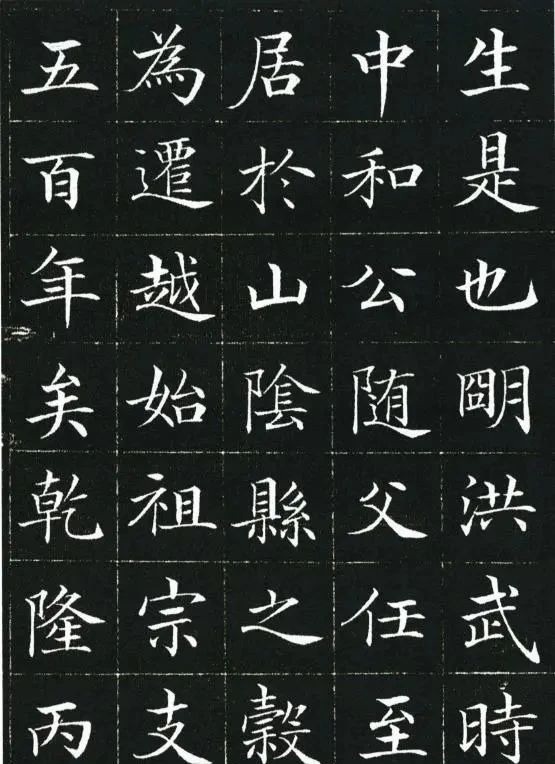 生是也朙洪武時
中和公随父任至
居於山陰縣之穀
為遷越始祖宗支
五百年矣乾隆丙